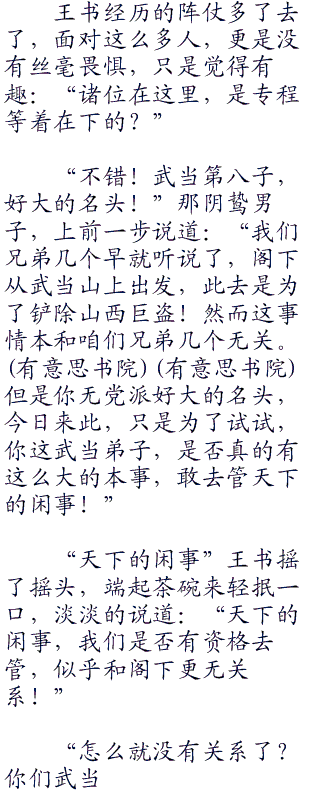 王书经历的阵仗多了去
了，面对这么多人，更是没
有丝毫畏惧，只是觉得有
趣：“诸位在这里，是专程
等着在下的？”
“不错！武当第八子，
好大的名头！”那阴鸷男
子，上前一步说道：“我们
兄弟几个早就听说了，阁下
从武当山上出发，此去是为
了铲除山西巨盗！然而这事
情本和咱们兄弟几个无关。
(有意思书院)(有意思书院)
但是你无党派好大的名头，
今日来此，只是为了试试，
你这武当弟子，是否真的有
这么大的本事，敢去管天下
的闲事！”
“天下的闲事”王书摇
了摇头，端起茶碗来轻抿一
口，淡淡的说道：“天下的
闲事，我们是否有资格去
管，似乎和阁下更无关
系！”
“怎么就没有关系了？
你们武当